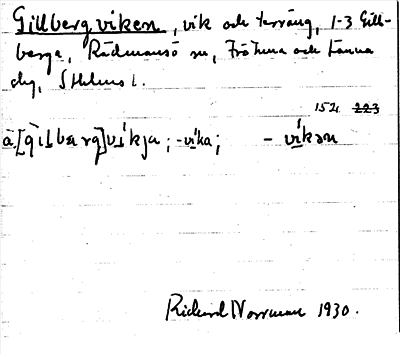 Gillbergviken, vik och terräng, 1-3 Gill-
berga, Rådmansö sn, Frötuna och Länna
skg, Sthlms l.
152 223
à [gilbärg]víkja; -vika; - víkən
Richard Norrman 1930.